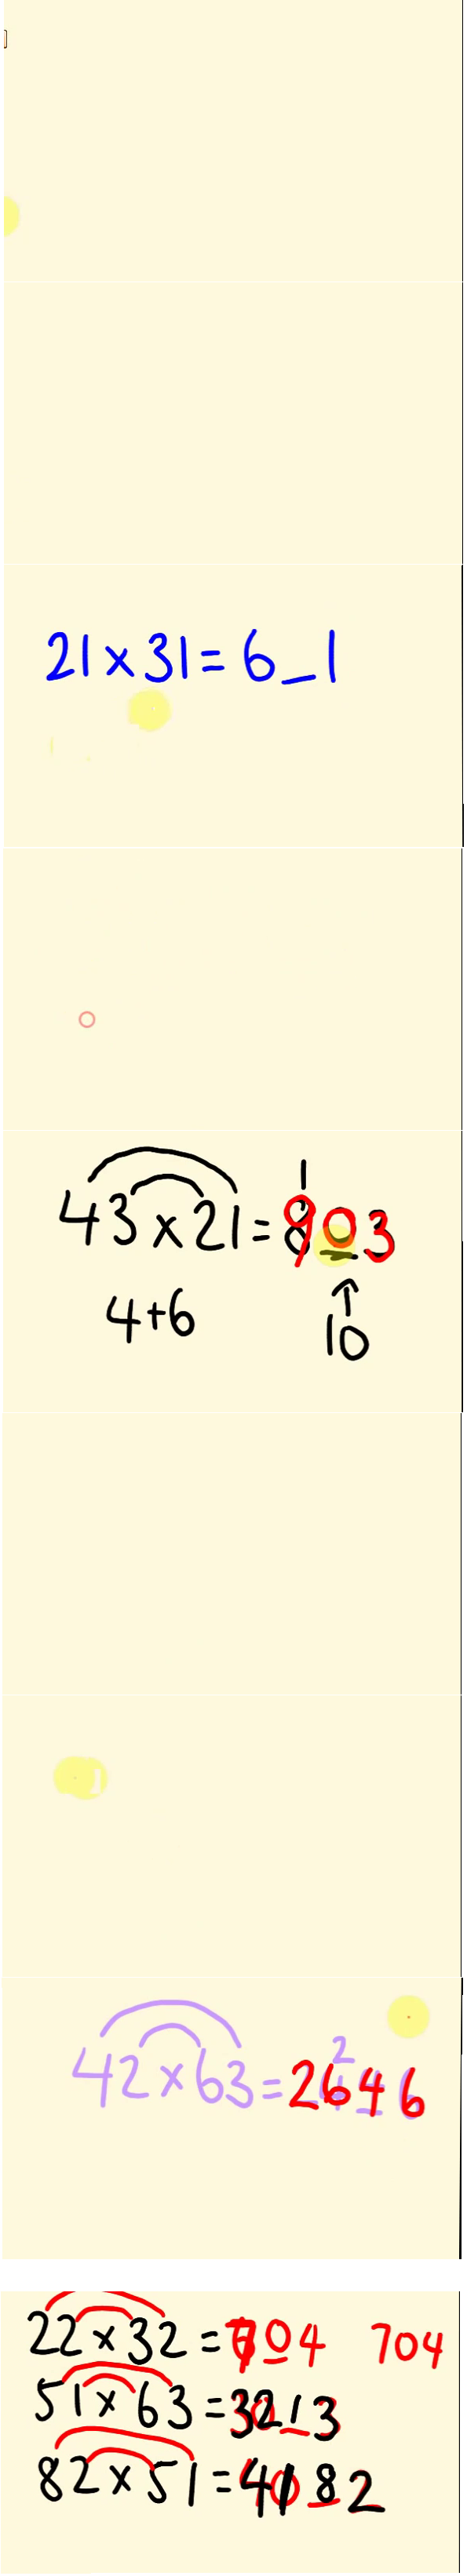 21×31=6_1
1
43×21=903
4+6
↑
10
2
42×63=2646
22×32=704 704
51×63=3213
82×51=4182